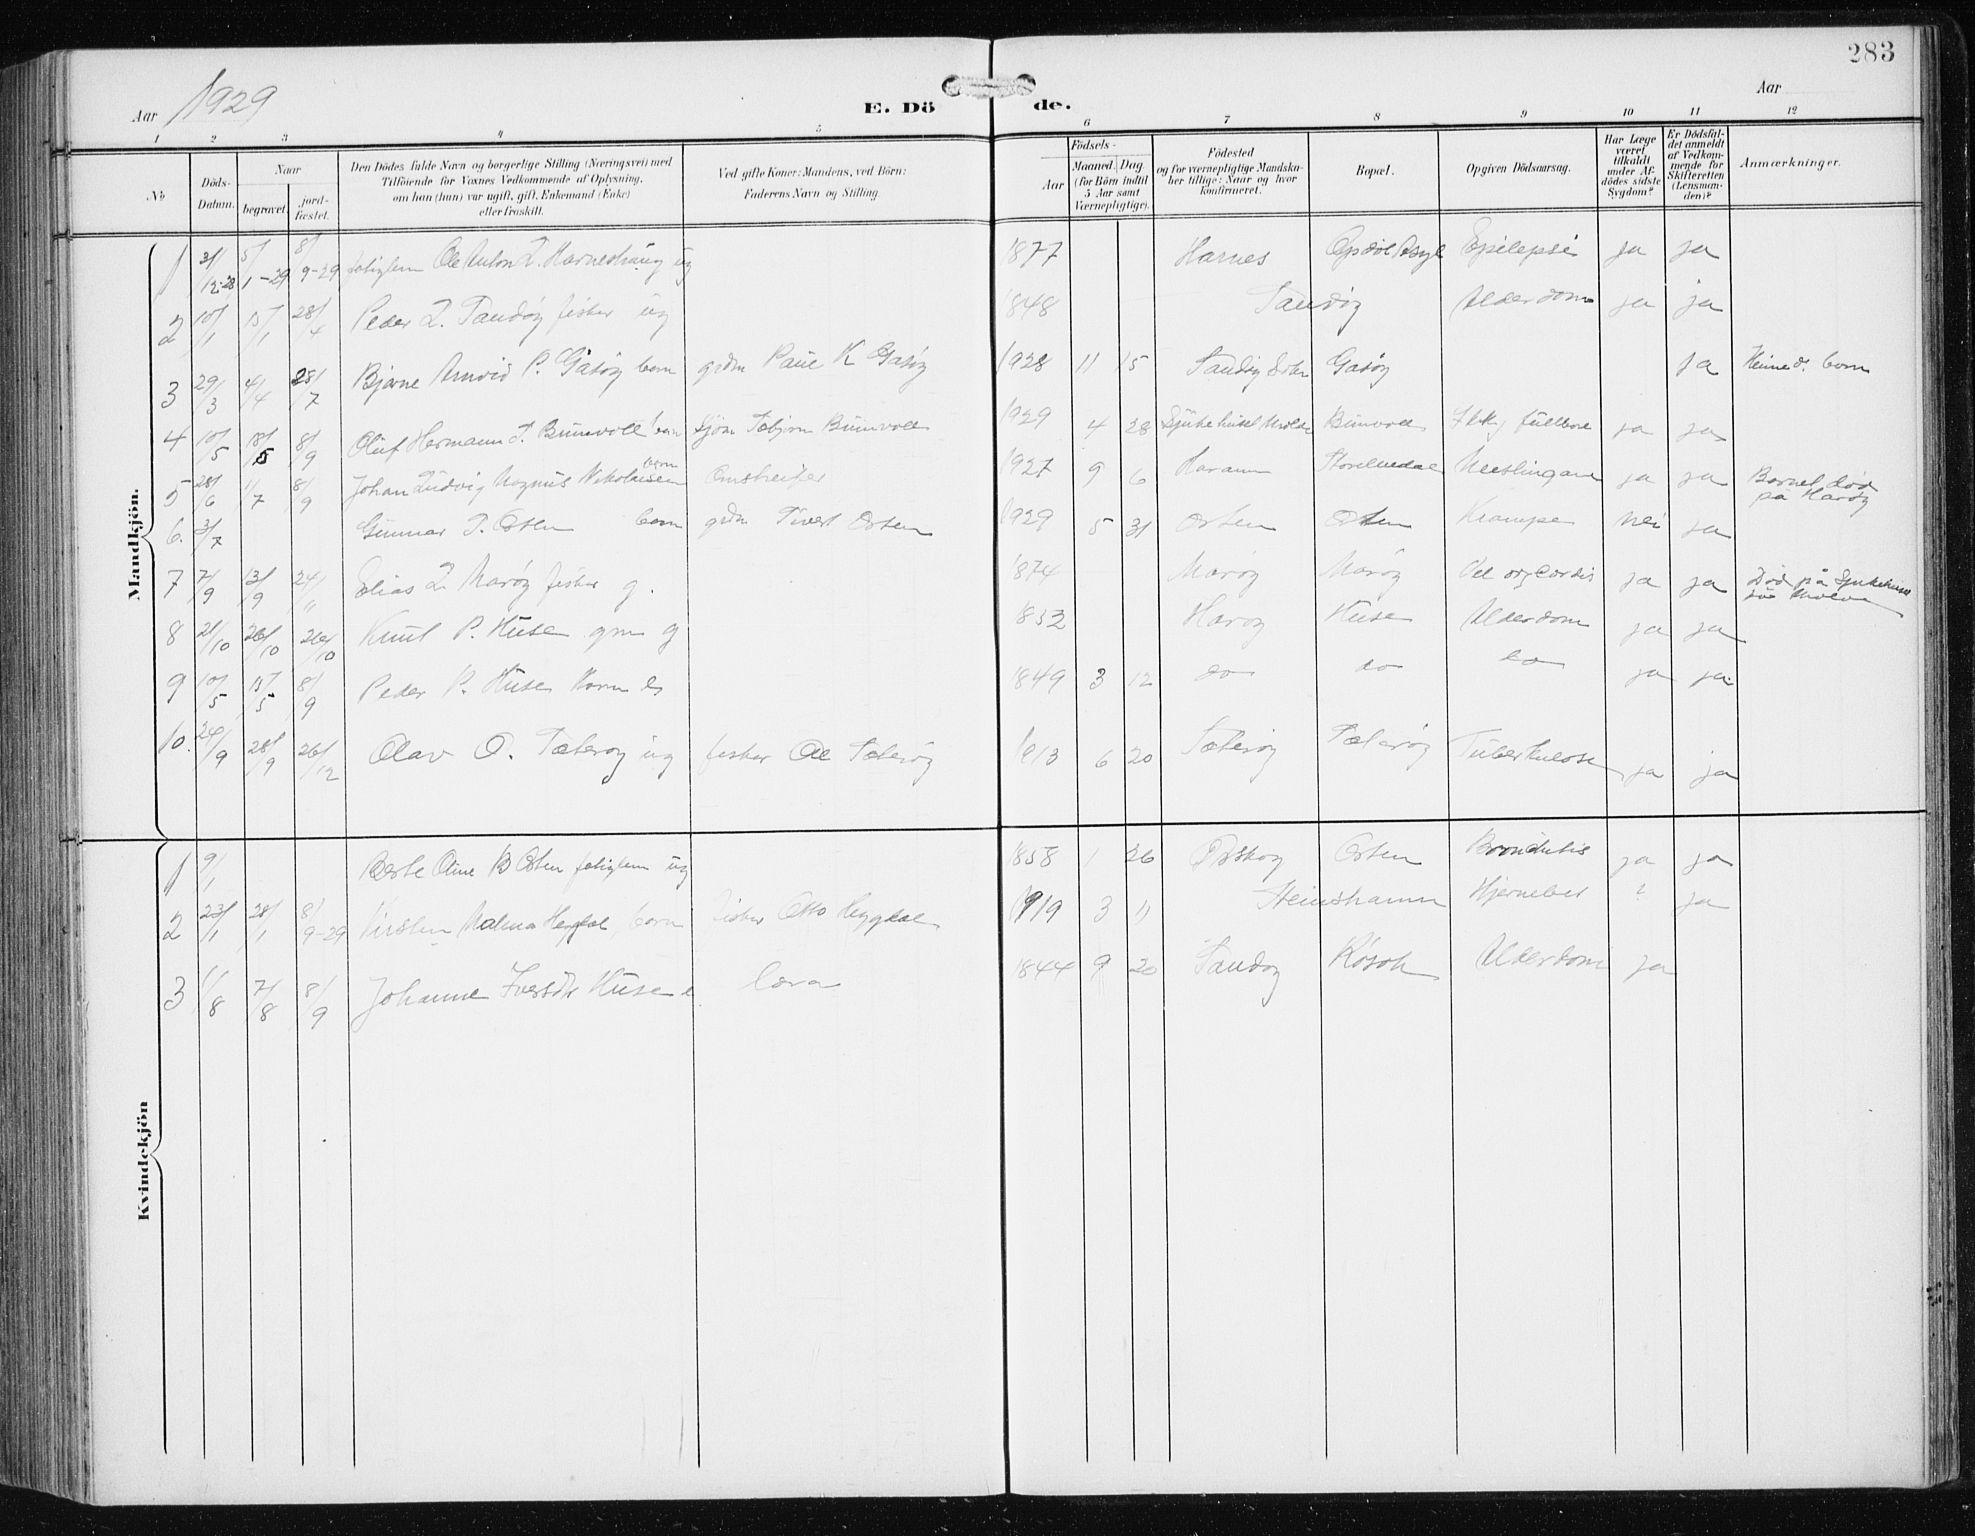 283
Aar 1929
E. Dö de.
Aar
1 2 3 4 5 6 7 8 9 10 11 12
No
Döds-Datum.
Naar
begravet.
jord-fæstet.
Den Dödes fulde Navn og borgerlige Stilling (Næringsvei) med
Tilföiende for Voxnes Vedkommende af Oplysning,
om han (hun) var ugift, gift, Enkemand (Enke)
eller fraskilt.
Ved gifte Koner: Mandens, ved Börn:
Faderens Navn og Stilling.
Födsels-
Aar
Maaned. Dag
(for Börn indtil
5 Aar samt
Værnepligtige).
Födested
og for værnepligtige Mandska-
ber tillige: Naar og hvor
konfirmeret.
Bopæl.
Opgiven Dödsaarsag.
Har Læge
været
tilkaldt
under Af-
dödes sidste
Sygdom?
Er Dödsfal-
det anmeldt
af Vedkom-
mende for
Skifteretten
(Lensman-
den)?
Anmærkninger.
Mandkjön.
1 31/12-28 5/1-29 8/9-29 fatiglem Ole Anton L. Harneshaug ug 1877 Harnes Opdøl Asyl Epilepsi ja ja
2 10/1 15/1 28/4 Peder L. Sandøy fisker ug 1848 Sandøy Alderdom ja ja
3 29/3 4/4 28/7 Bjarne Arnvid P. Gåsøy barn grdm Paul K Gåsøy 1928 11 15 Sandøy Gåsøy ja
4 10/5 18/5 8/9 Oluf Hermann T. Buinvoll barn Tobjørn Buinvoll 1929 4 28 Sjukehuset Molde Buinvoll Ikke fullbore ja ja
5 28/6 1/7 8/9 Johan Ludvig Magnus Nikolaisen barn Omstreifer 1927 9 6 Haram Meslingar ja ja Barnet død
på Harøy
6. 3/7 Gunnar S. Orten barn grdm Sivert Orten 1929 5 31 Orten Orten Krampe nei ja
7 7/9 13/9 24/11 Elias L Marøy fisker g. 1874 Marøy Marøy Vit org cordis ja ja Død på Sjukehuset
8 21/10 26/10 26/10 Knut P. Huse gm g 1852 Harøy Huse Alderdom ja ja
9 10/5 15/5 8/9 Peder P. Huse 1849 3 12 do do do ja ja
10. 24/9 28/9 26/12 Olav O. Sæterøy ug fisker Ole Sæterøy 1913 6 20 Sæterøy Sæterøy Tuberkulose ja ja
Kvindekjön
1 9/1 Berte Oline B Orten fatiglem ug 1858 1 26 Ørskog Orten Bronchitis ja ja
2 23/1 28/1 8/9-29 Kirsten Malma Heggdal barn Fisker Otto Heggdal 1919 3 11 Steinshamn Hjernebet ? ja
3 1/8 7/8 8/9 Johanne Iversdtr Huse e 1844 9 20 Sandøy Røsok Alderdom ja